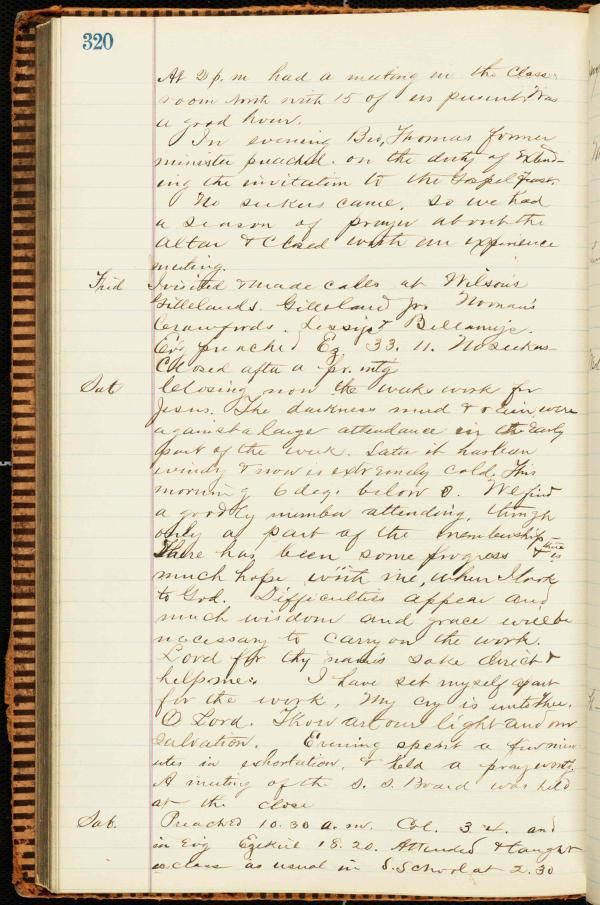 320
At 2 p.m had a meeting in the Class
room with 15 of us present. Was
a good hour.
In evening Bro. Thomas former
minister preached. on the duty of extend-
ing the invitation to the Gospel feast.
No seekers came. so we had
a season of prayer about the
altar & closed with an experience
meeting.
Frid I visited & made calls at Wilson's
Gillelands. Gilleland Jr. Norman's
Crawfords. &
Evg preached Ez 33. 11. No seekers
Closed after a pr. mtg
Sat Closing now the weeks work for
Jesus. The darkness mud & rain were
against a large attendance in the early
part of the week. Later it has been
windy & now is extremely cold. This
morning 6 deg. below 0. We find
a goodly number attending, though
only a part of the membership.
There has been some progress & there is
much hope with me, when I look
to God. Difficulties appear and
much wisdom and grace will be
necessary to carry on the work.
Lord for thy name's sake direct &
help me. I have set myself apart
for the work. My cry is unto Thee.
O Lord. Thou art our light and our
salvation. Evening spent a few min-
utes in exhortation, & held a pray mtg.
A meeting of the S. S. Board was held
at the close
Sab. Preached 10.30 a.m. Col. 3.4. and
in Evg Ezekiel 18.20. Attended & taught
a class as usual in S. School at 2.30